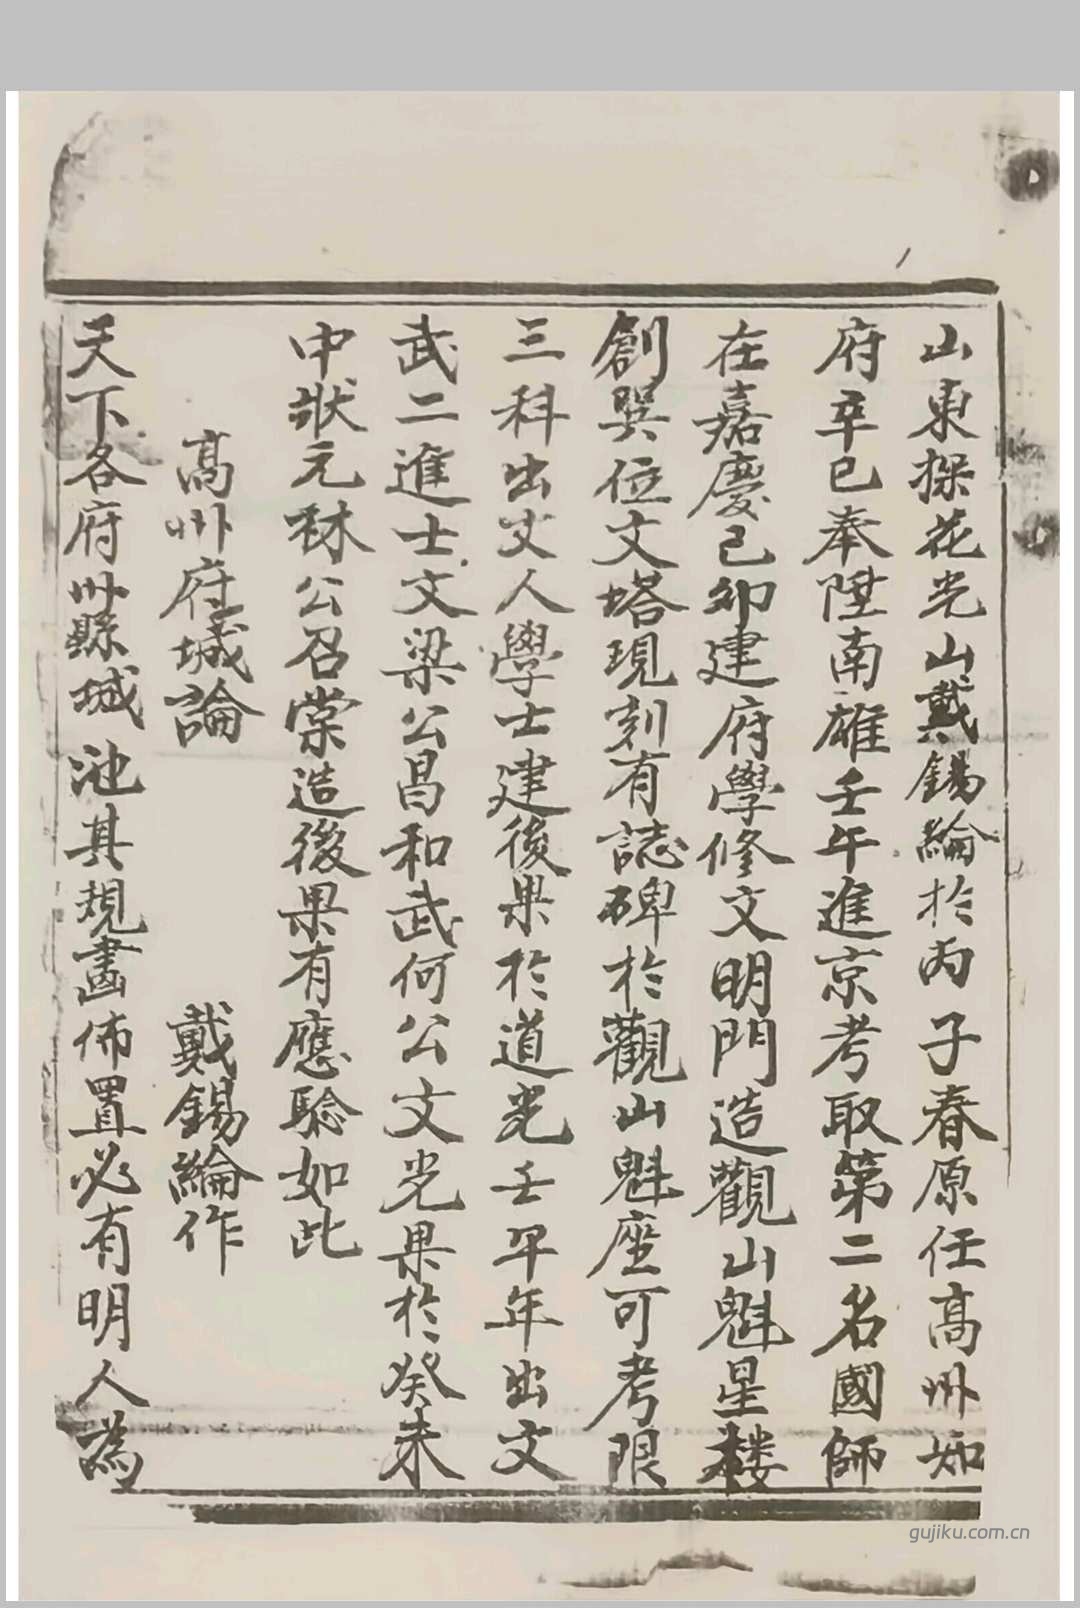 山東探花光山戴錫綸於丙子春原任高州知
府辛巳奉陞南雄壬午進京考取第二名國師
在嘉慶己卯建府學修文明門造觀山魁星楼
創巽位文塔現刻有誌碑於觀山魁座可考限
三科出文人學士建後果於道光壬午年出文
武二進士文梁公昌和武何公文光果於癸未
中狀元林公召棠造後果有應驗如此
高州府城論 戴錫綸作
天下各府州縣城池其規畫佈置必有明人為
gujiku.com.cn